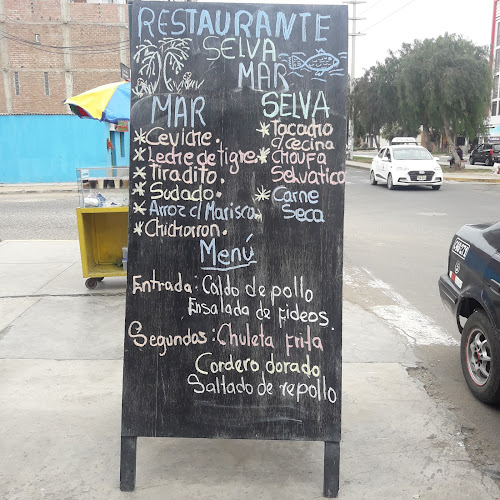 RESTAURANTE
SELVA
MAR
MAR
* Ceviche.
* Leche de Tigre
* Tiradito.
* Sudado.
* Arroz c/ Marisco.
* Chicharron.
SELVA
* Tacacho
c/ Cecina
* Chaufa
Selvatica
* Carne
Seca
Menú
Entrada: Caldo de pollo
Ensalada de fideos.
Segundas: Chuleta frita
Cordero dorado
Saltado de repollo